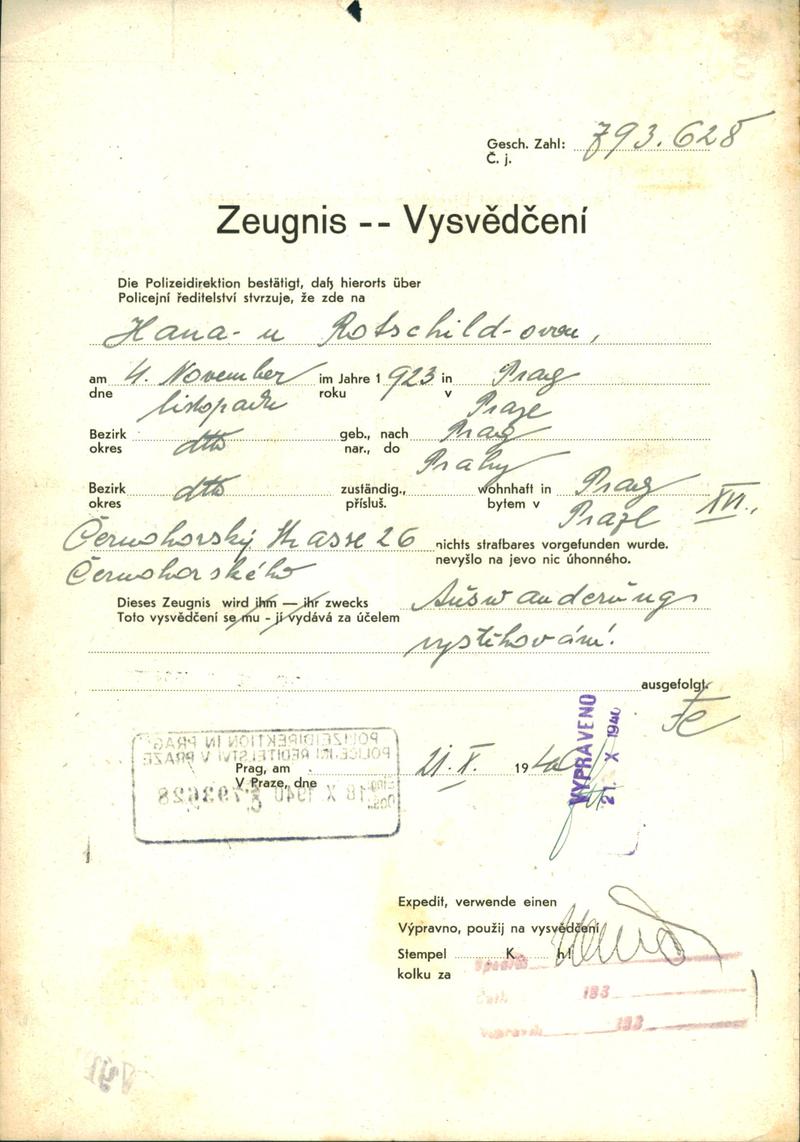 Gesch. Zahl: 793.628
Č. j.
Zeugnis -- Vysvědčení
Die Polizeidirektion bestätigt, daß hierorts über
Policejní ředitelství stvrzuje, že zde na
Hana- u Rotschild-ovou,
am 4. November im Jahre 1923 in Prag
dne listopadu roku v Praze
Bezirk dtto geb., nach Prag
okres nar., do Prahy
Bezirk dtto zuständig., wohnhaft in Prag
okres přísluš. bytem v Praze XVI.,
Černohorský Strasse 26 nichts strafbares vorgefunden wurde.
Černohorského nevyšlo na jevo nic úhonného.
Dieses Zeugnis wird ihm — ihr zwecks Auswanderung
Toto vysvědčení se mu - jí vydává za účelem
vystěhování.
ausgefolgt.
POLIZEIDIREKTION IN PRAG
POLICEJNÍ ŘEDITELSTVÍ V PRAZE
Prag, am 21. X. 1940
V Praze, dne
18 X 1940 793628
VYPRAVENO
21. X 1940
Expedit, verwende einen
Výpravno, použij na vysvědčení
Stempel K h!
kolku za
193
193